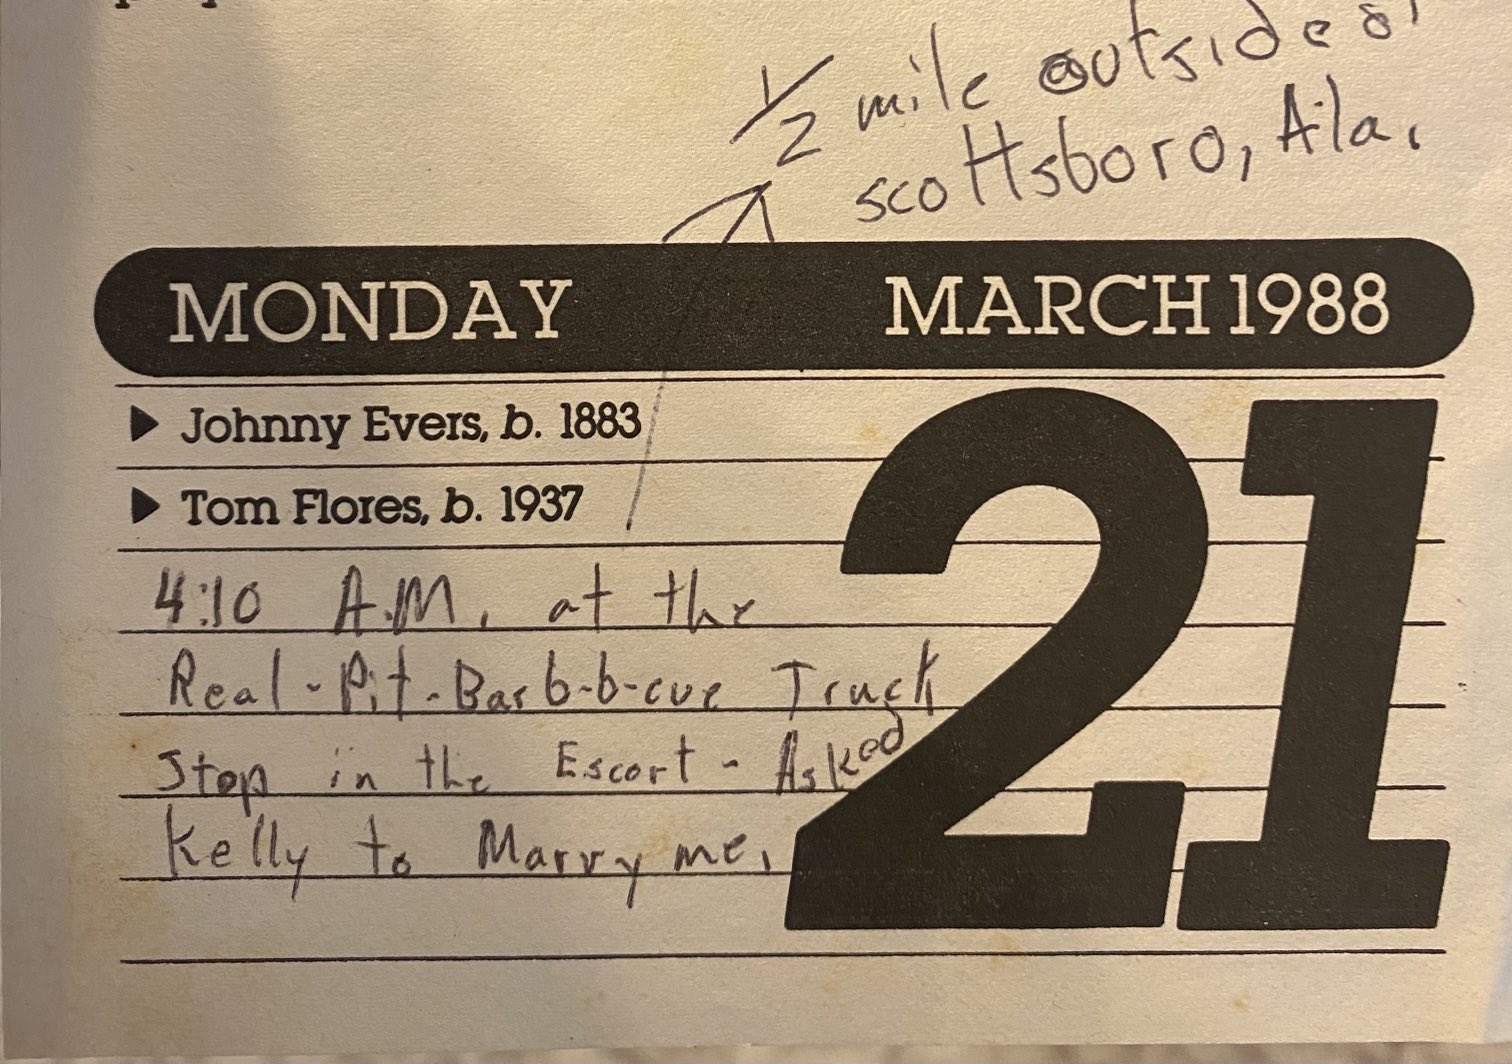 1/2 mile outside of
scottsboro, Ala.
MONDAY MARCH 1988
▶ Johnny Evers, b. 1883
▶ Tom Flores, b. 1937
21
4:10 A.M. at the
Real-Pit-Bar b-b-cue Truck
Stop in the Escort - Asked
Kelly to Marry me.